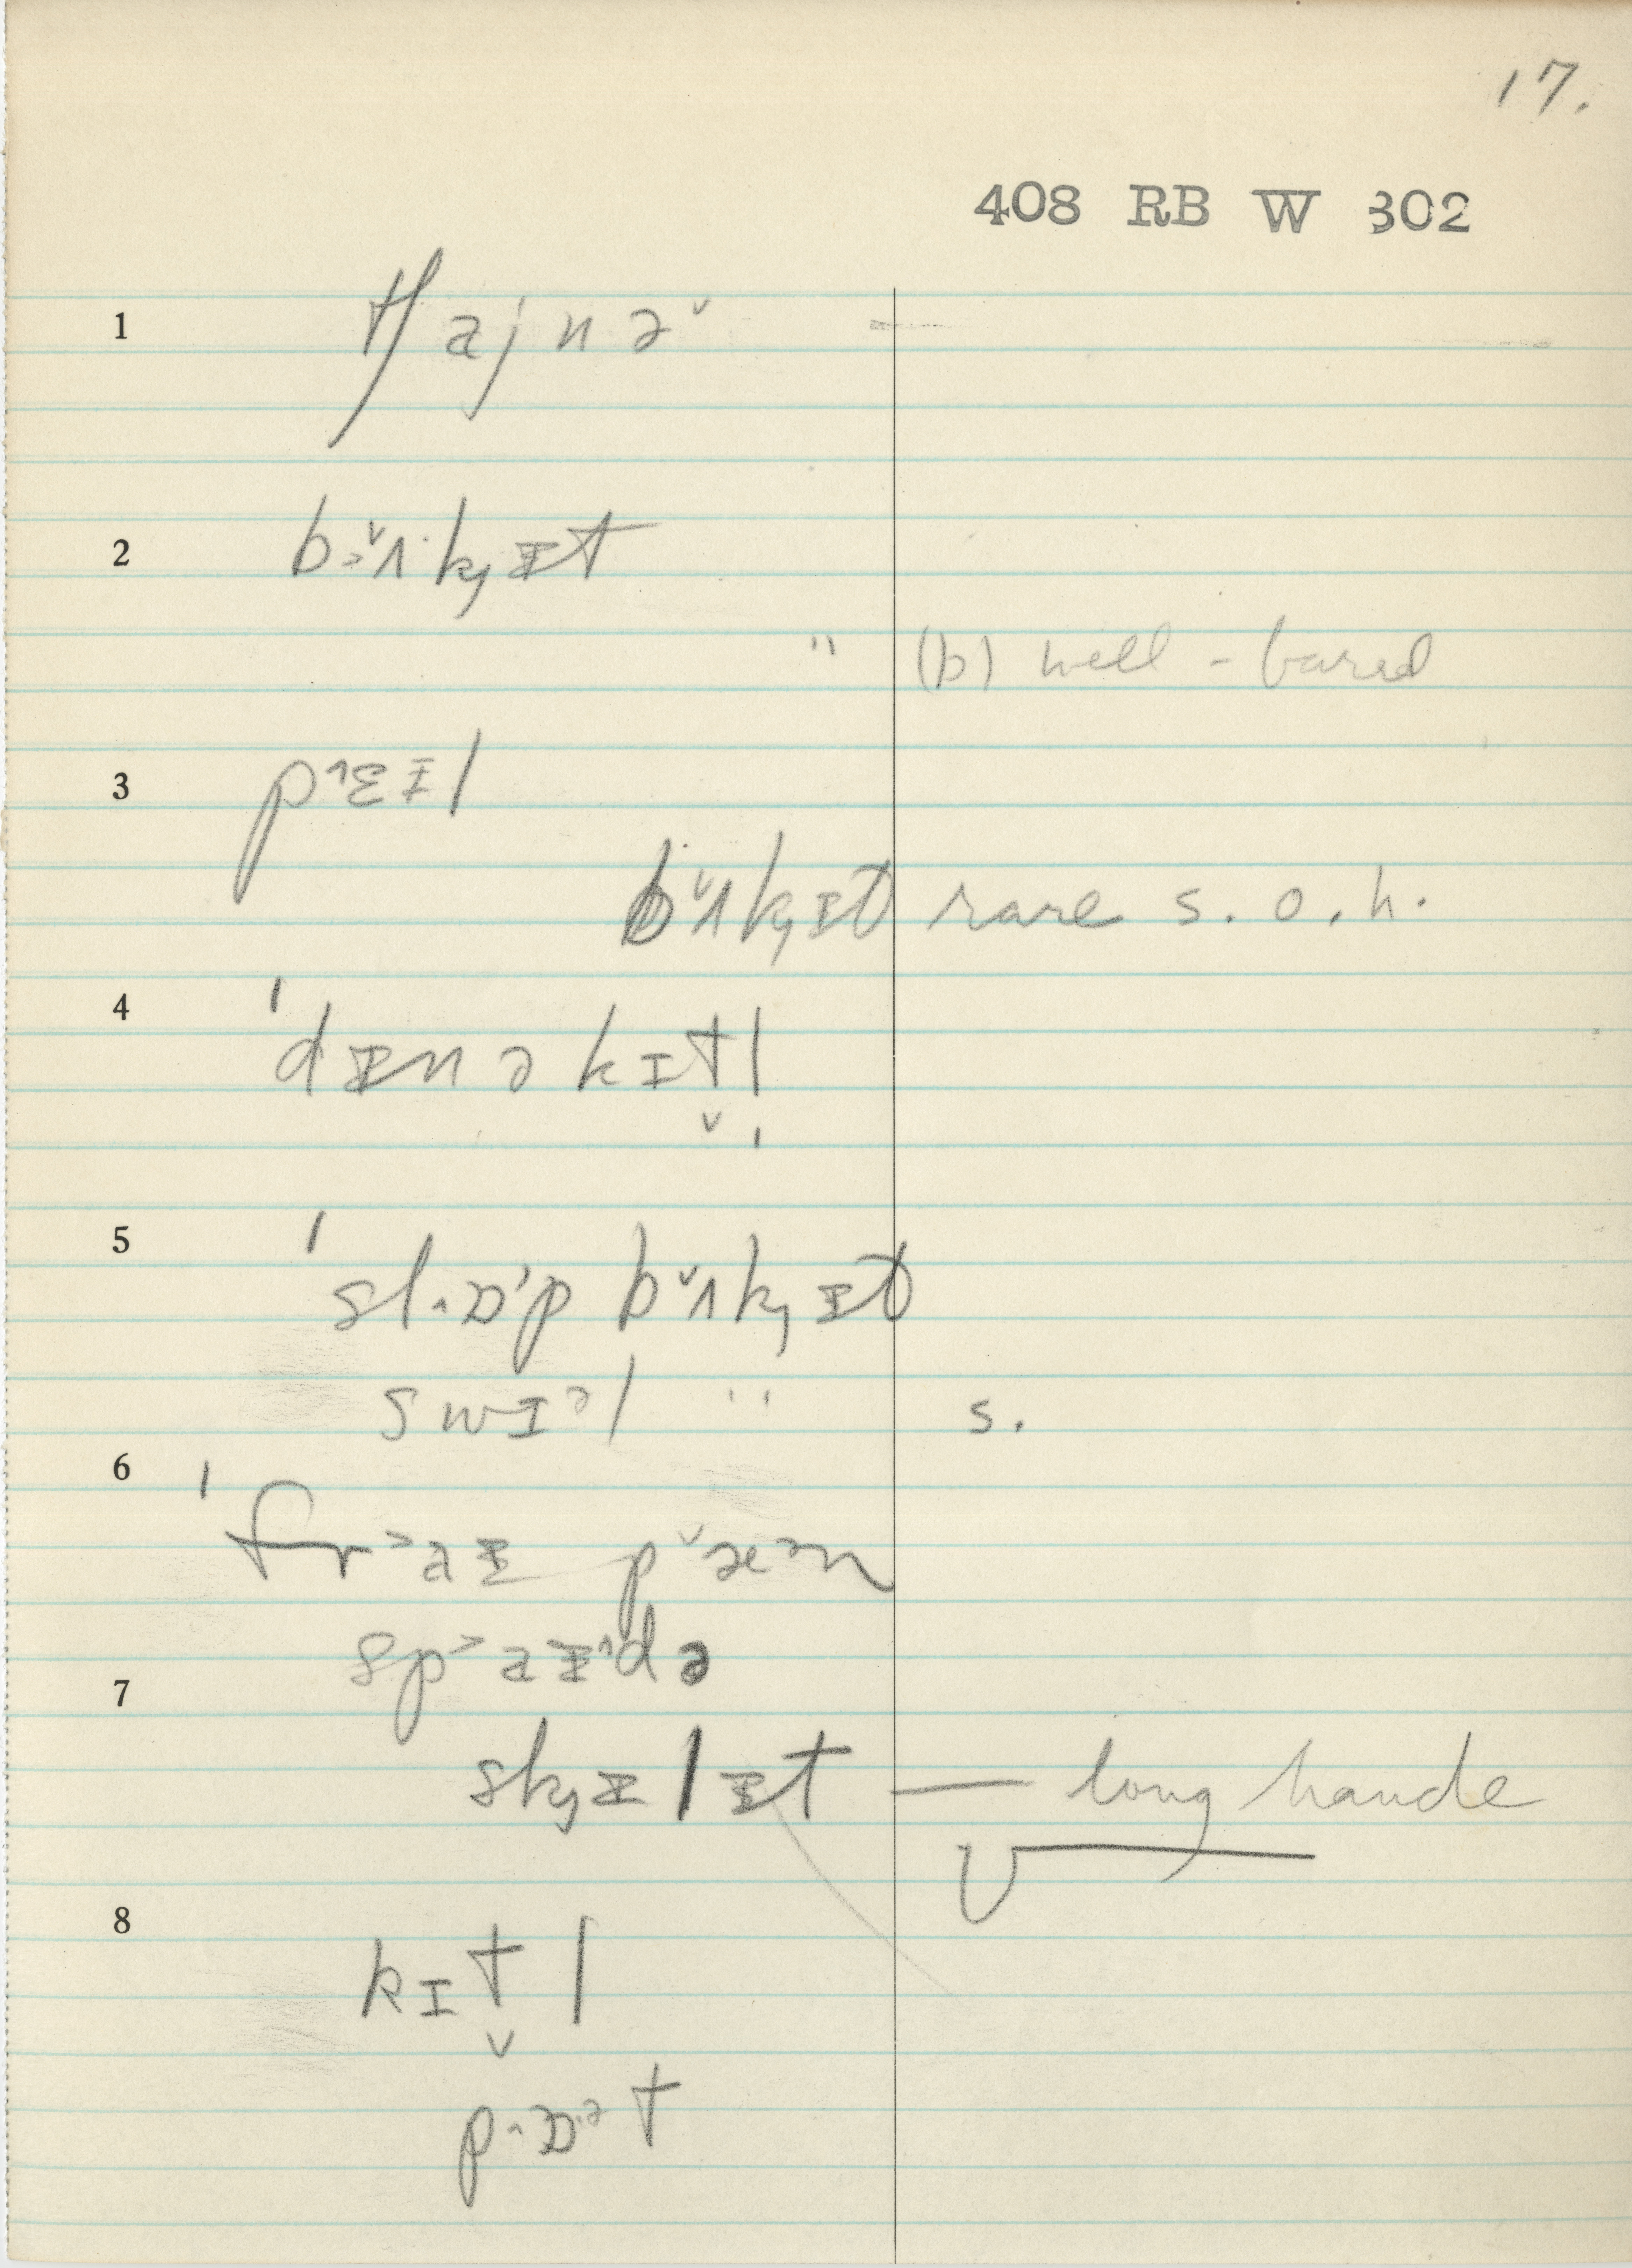 17.
408 RB W 302
1 tʃajnə˅
2 bɜ˅ʌkɟᵻt
" (b) well - bared
3 p^ɛɪl
b˅ʌkɟᵻt rare s. o. h.
4 ˈdᵻnəkɪt̬l̩
5 ˈslɒp b˅ʌkɟᵻt
swɪᵊl " s.
6 ˈfr˃aᵻ p˅æᵊn
sp˃aᵻ^də
7 skɟᵻlᵻt — long hande
8 kɪt̬l
pɒᵊt